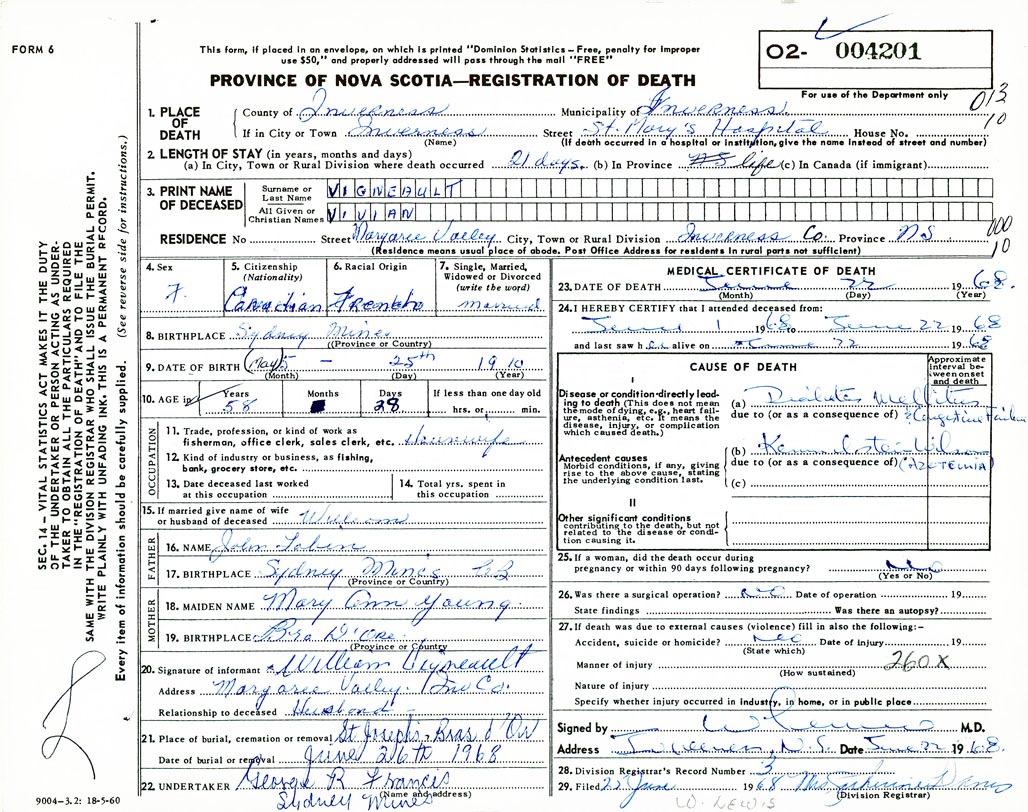 FORM 6
This form, if placed in an envelope, on which is printed "Dominion Statistics – Free, penalty for improper
use $50," and properly addressed will pass through the mail "FREE"
O2- 004201
PROVINCE OF NOVA SCOTIA—REGISTRATION OF DEATH
For use of the Department only
013
10
1. PLACE OF DEATH
County of Inverness Municipality of Inverness
If in City or Town Inverness Street St. Mary's Hospital House No.
(Name) (If death occurred in a hospital or institution, give the name instead of street and number)
2. LENGTH OF STAY (in years, months and days)
(a) In City, Town or Rural Division where death occurred 21 days. (b) In Province life (c) In Canada (if immigrant)
3. PRINT NAME OF DECEASED
Surname or Last Name VIGNEAULT
All Given or Christian Names VIVIAN
000
10
RESIDENCE No Street Margaree Valley City, Town or Rural Division Inverness Co. Province N.S.
(Residence means usual place of abode. Post Office Address for residents in rural parts not sufficient)
4. Sex F.
5. Citizenship (Nationality) Canadian
6. Racial Origin French
7. Single, Married, Widowed or Divorced (write the word) married
8. BIRTHPLACE Sydney Mines
(Province or Country)
9. DATE OF BIRTH (May) 5 – 25th 1910
(Month) (Day) (Year)
10. AGE in Years 58 Months Days 28 If less than one day old
hrs. or min.
OCCUPATION
11. Trade, profession, or kind of work as
fisherman, office clerk, sales clerk, etc. Housewife
12. Kind of industry or business, as fishing,
bank, grocery store, etc.
13. Date deceased last worked
at this occupation
14. Total yrs. spent in
this occupation
15. If married give name of wife
or husband of deceased William
FATHER
16. NAME John
17. BIRTHPLACE Sydney Mines C.B.
(Province or Country)
MOTHER
18. MAIDEN NAME Mary Ann Young.
19. BIRTHPLACE Bra D'Ore
(Province or Country)
20. Signature of informant William Vigneault
Address Margaree Valley. Inv Co.
Relationship to deceased Husband –
21. Place of burial, cremation or removal St Joseph's, Bras d'Or
Date of burial or removal June 26th 1968
22. UNDERTAKER George R Francis
(Name and address)
Sydney Mines
MEDICAL CERTIFICATE OF DEATH
23. DATE OF DEATH June 22 1968.
(Month) (Day) (Year)
24. I HEREBY CERTIFY that I attended deceased from:
June 1 1968 to June 22 1968
and last saw her alive on June 22 1968
CAUSE OF DEATH
Approximate interval between onset and death
I
Disease or condition directly leading to death (This does not mean the mode of dying, e.g., heart failure, asthenia, etc. It means the disease, injury, or complication which caused death.)
(a) Diabetes Mellitus
due to (or as a consequence of) & Congestive Failure
Antecedent causes
Morbid conditions, if any, giving rise to the above cause, stating the underlying condition last.
(b)
due to (or as a consequence of) (AZOTEMIA)
(c)
II
Other significant conditions
contributing to the death, but not related to the disease or condition causing it.
25. If a woman, did the death occur during
pregnancy or within 90 days following pregnancy? No
(Yes or No)
26. Was there a surgical operation? No Date of operation 19
State findings Was there an autopsy?
27. If death was due to external causes (violence) fill in also the following:-
Accident, suicide or homicide? No Date of injury 19
(State which)
Manner of injury 260X
(How sustained)
Nature of injury
Specify whether injury occurred in industry, in home, or in public place
Signed by M.D.
Address Inverness, N.S. Date June 22 1968.
28. Division Registrar's Record Number 3
29. Filed 25 June 1968 Mrs. Catherine
(Division Registrar)
SEC. 14 – VITAL STATISTICS ACT MAKES IT THE DUTY
OF THE UNDERTAKER OR PERSON ACTING AS UNDER-
TAKER TO OBTAIN ALL THE PARTICULARS REQUIRED
IN THE "REGISTRATION OF DEATH" AND TO FILE THE
SAME WITH THE DIVISION REGISTRAR WHO SHALL ISSUE THE BURIAL PERMIT.
WRITE PLAINLY WITH UNFADING INK. THIS IS A PERMANENT RECORD.
Every item of information should be carefully supplied. (See reverse side for instructions.)
9004-3.2: 18-5-60